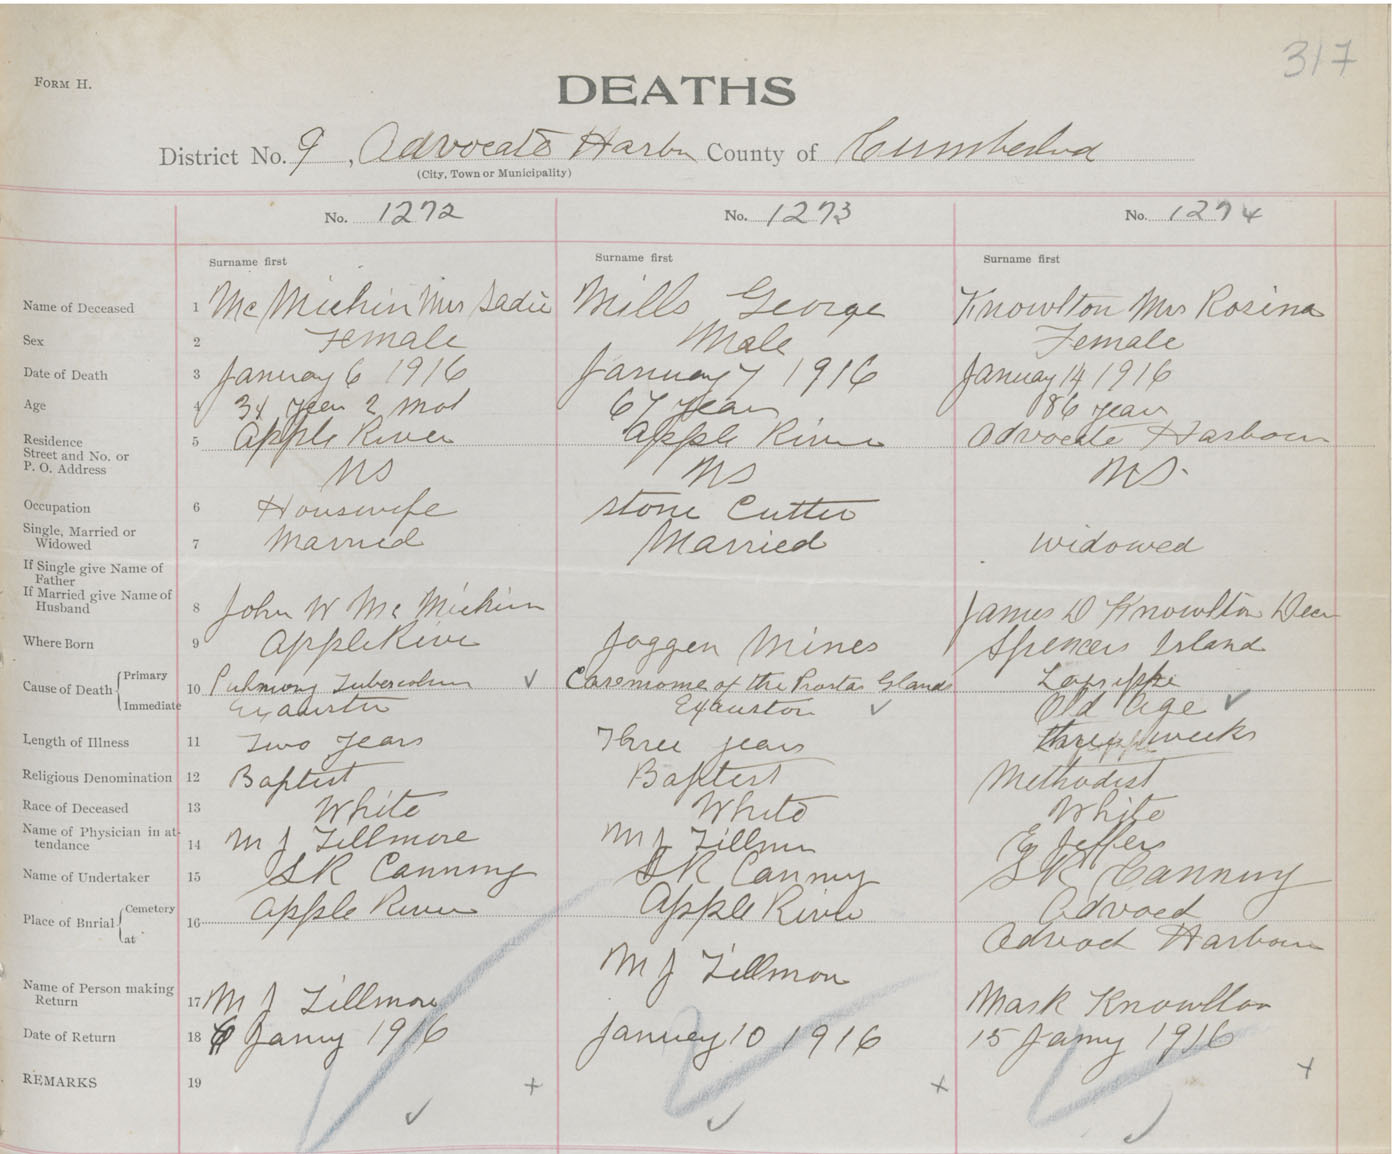 317
FORM H.
DEATHS
District No. 9, Advocate Harbr County of Cumberland
(City, Town or Municipality)
No. 1272 No. 1273 No. 1274
Surname first Surname first Surname first
Name of Deceased 1 Mc Mickin Mrs Sadie Mills George Knowlton Mrs Rosina
Sex 2 Female Male Female
Date of Death 3 January 6 1916 January 7 1916 January 14 1916
Age 4 34 year 2 mot 67 years 86 years
Residence 5 Apple River Apple River Advocate Harbour
Street and No. or
P. O. Address NS NS NS.
Occupation 6 Housewife stone Cutter
Single, Married or
Widowed 7 Married Married widowed
If Single give Name of
Father
If Married give Name of
Husband 8 John W Mc Mickin James D Knowlton
Where Born 9 Apple River Joggen Mines Spencers Island
Cause of Death Primary 10 Pulmonary Tuberculosis Carsenome of the Prostas Glands Lagrippe
Immediate Exaustion Exauston Old Age
Length of Illness 11 Two years Three years three weeks
Religious Denomination 12 Baptist Baptist Methodist
Race of Deceased 13 White White White
Name of Physician in at-
tendance 14 M J Fillmore M J Fillmor E Jeffers
Name of Undertaker 15 S R Canning S R Canning S R Canning
Place of Burial Cemetery 16 Apple River Apple River Advocd
at Advoct Harbour
M J Fillmore
Name of Person making
Return 17 M J Fillmore Mark Knowlton
Date of Return 18 Janry 1916 January 10 1916 15 Janry 1916
REMARKS 19